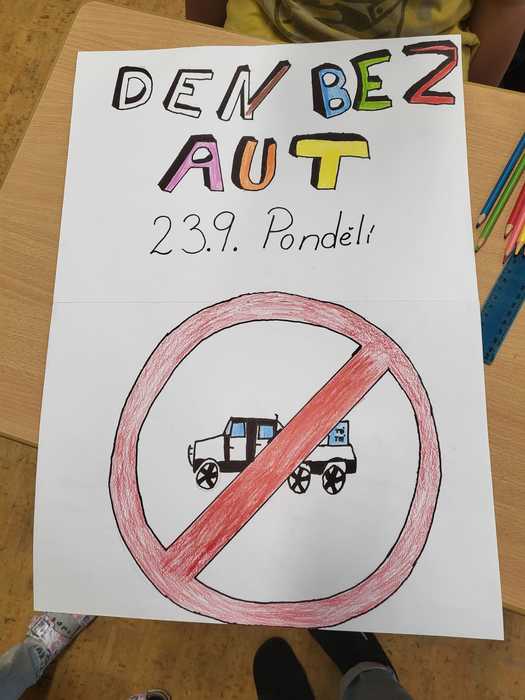 DEN BEZ
AUT
23.9. Pondělí